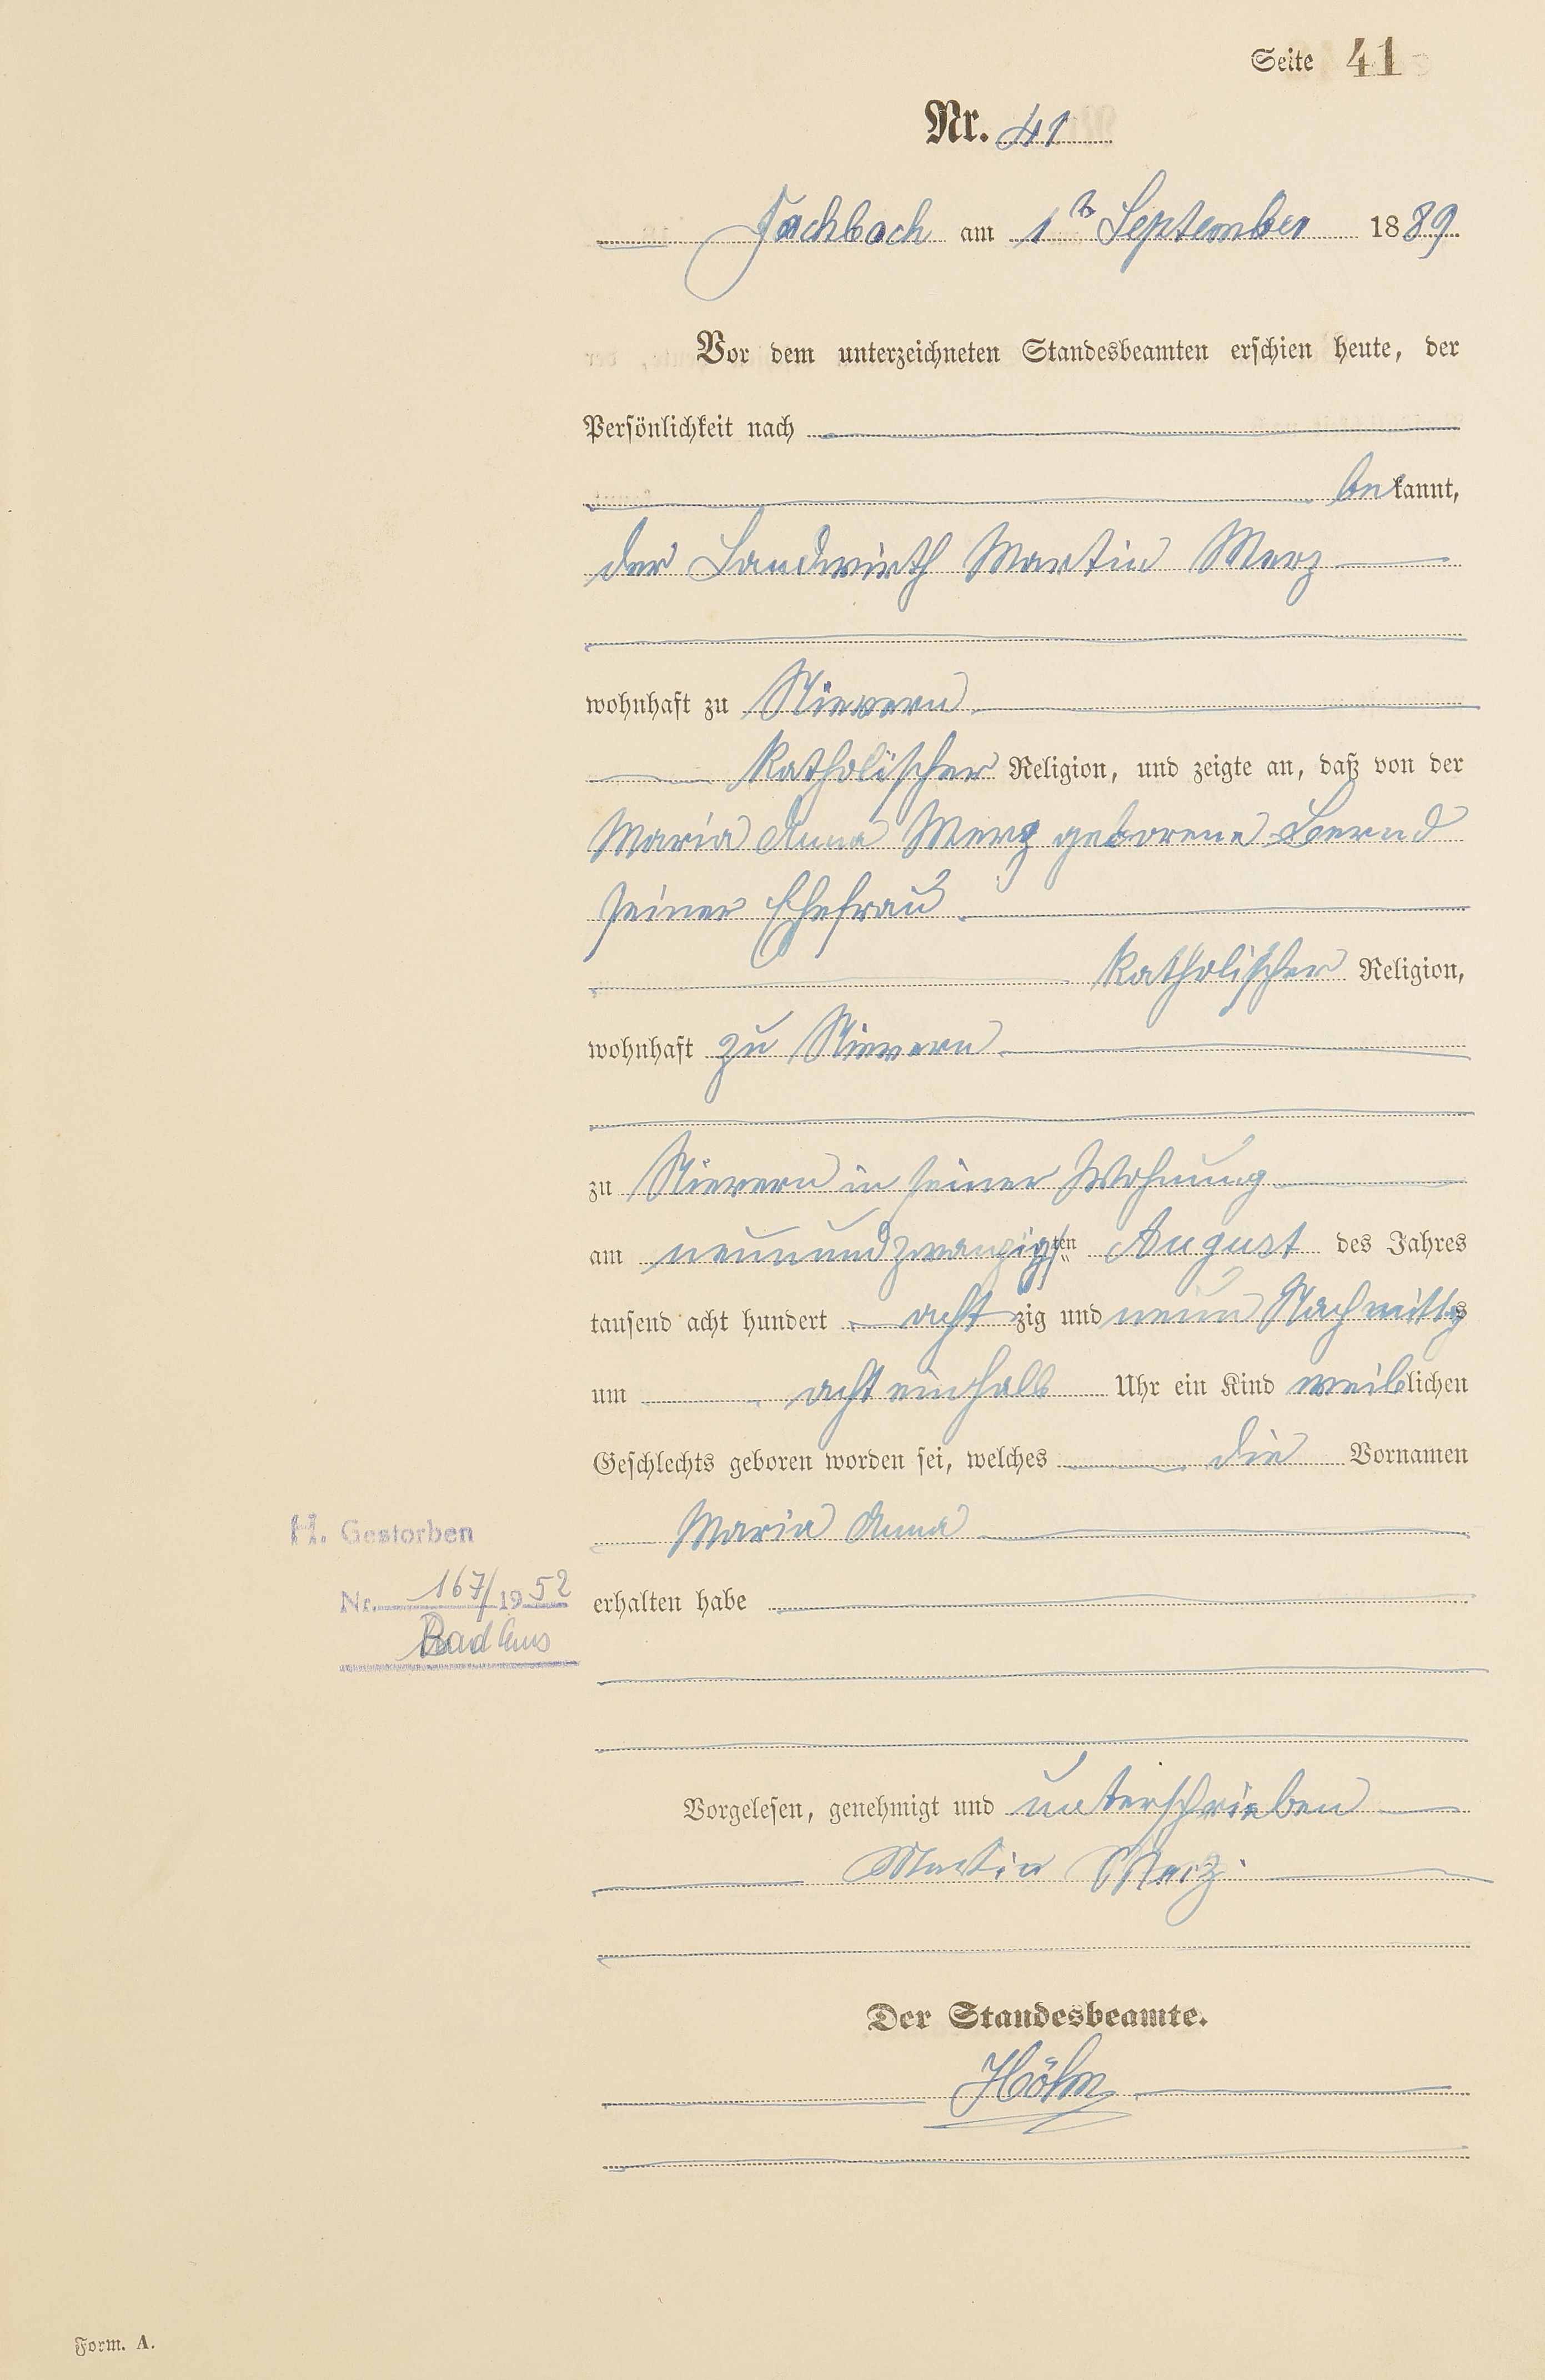 Seite 41
Nr. 41
Fachbach am 1ten September 1889
Vor dem unterzeichneten Standesbeamten erschien heute, der
Persönlichkeit nach
bekannt,
der Landwirth Martin Merz
wohnhaft zu Nievern
katholischer Religion, und zeigte an, daß von der
Maria Anna Merz geborene Bernd
seiner Ehefrau
katholischer Religion,
wohnhaft zu Nievern
zu Nievern in seiner Wohnung
am neunundzwanzigsten August des Jahres
tausend acht hundert achtzig und neun Nachmittags
um acht einhalb Uhr ein Kind weiblichen
Geschlechts geboren worden sei, welches die Vornamen
Maria Anna
H. Gestorben
Nr. 167/1952
Bad Ems
erhalten habe
Vorgelesen, genehmigt und unterschrieben
Martin Merz
Der Standesbeamte.
Höhn
Form. A.